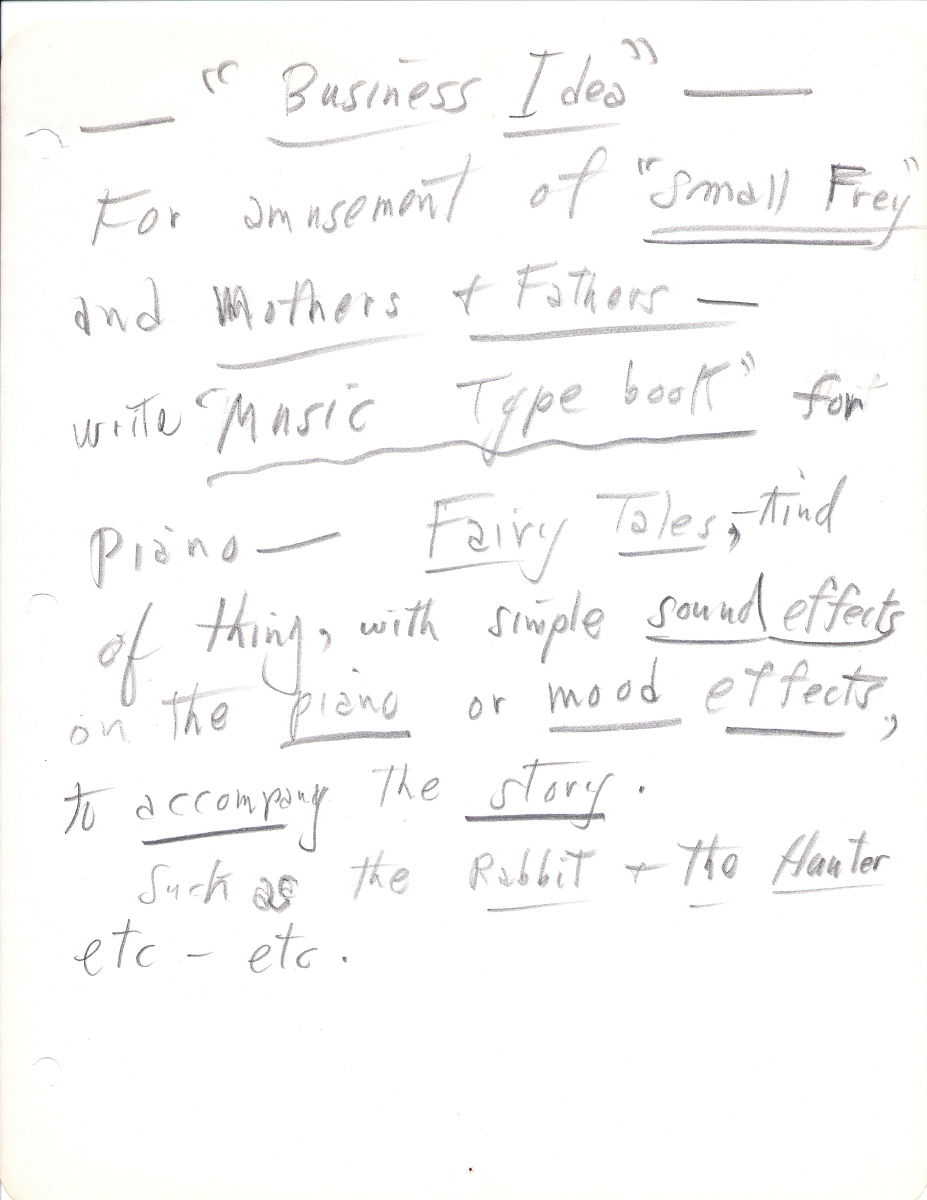 — "Business Idea" —
For amusement of "Small Frey"
and Mothers + Fathers —
write "Music Type book" for
piano — Fairy Tales, - kind
of thing, with simple sound effects
on the piano or mood effects,
to accompany the story.
Such as the Rabbit + the Hunter
etc - etc.